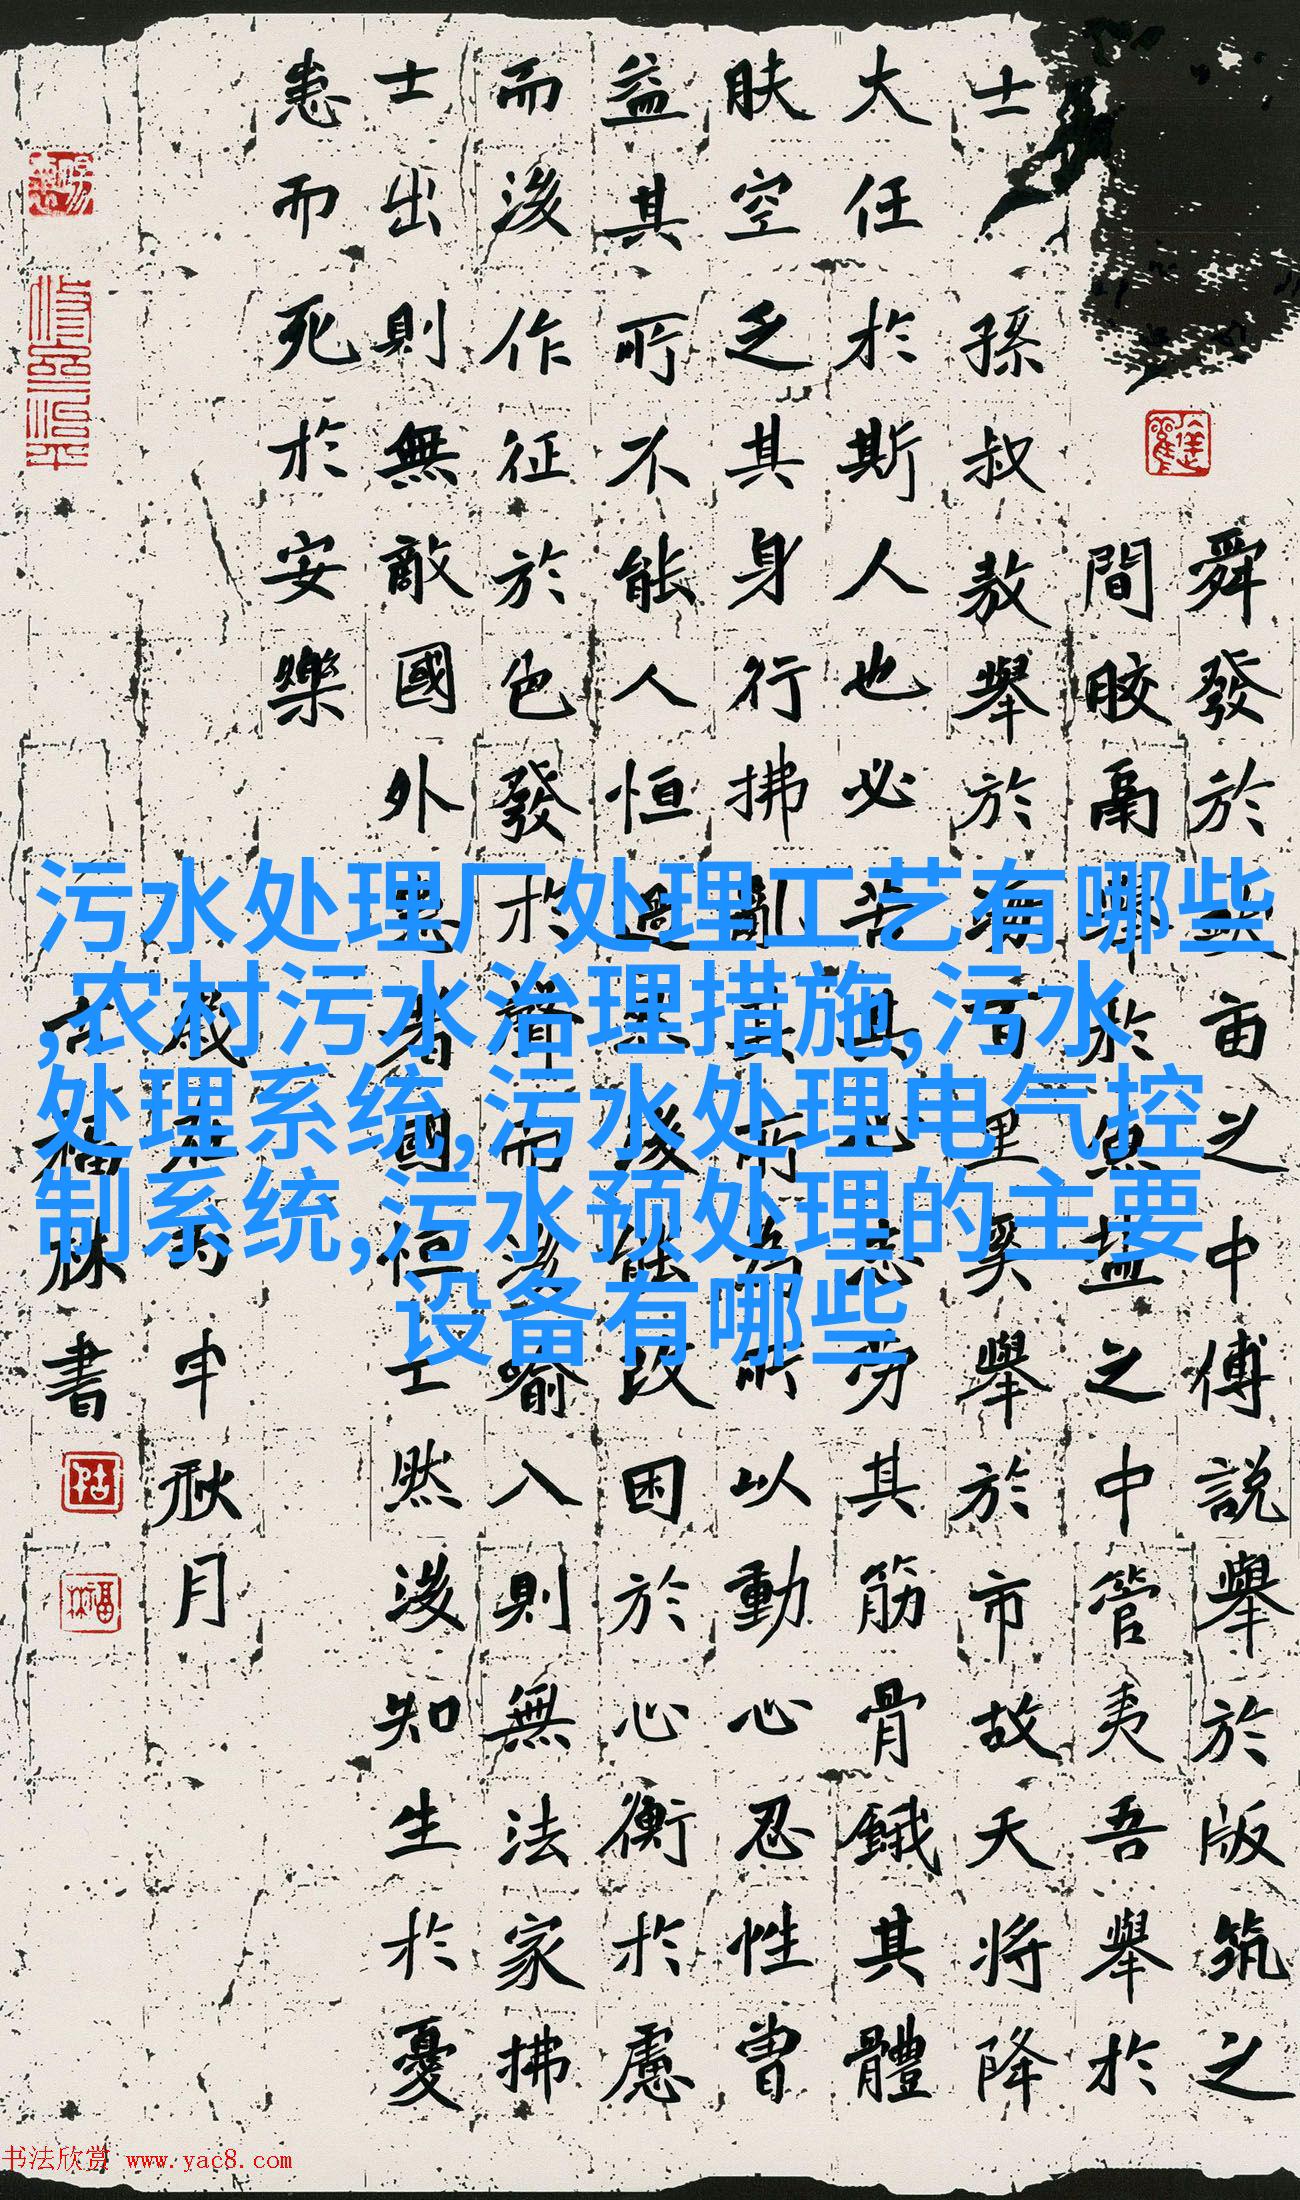 舜發於畎亩之中傅說舉於版筑之
間胶鬲舉於魚盐之中管夷吾舉於
士孫叔敖舉於海百里奚舉於市故天將降
大任於斯人也必苦其心志劳其筋骨餓其體
肤空乏其身行拂亂其所為所以動心忍性曾
益其所不能人恒過然後能改困於心衡於慮
而後作征於色發於聲而後喻入則無法家拂
士出則無敵國外患者國恒亡然後知生於憂
患而死於安樂
歲在丙申秋月
福林書
污水处理厂处理工艺有哪些
,农村污水治理措施,污水
处理系统,污水处理电气控
制系统,污水预处理的主要
设备有哪些
书法欣赏 www.yac8.com